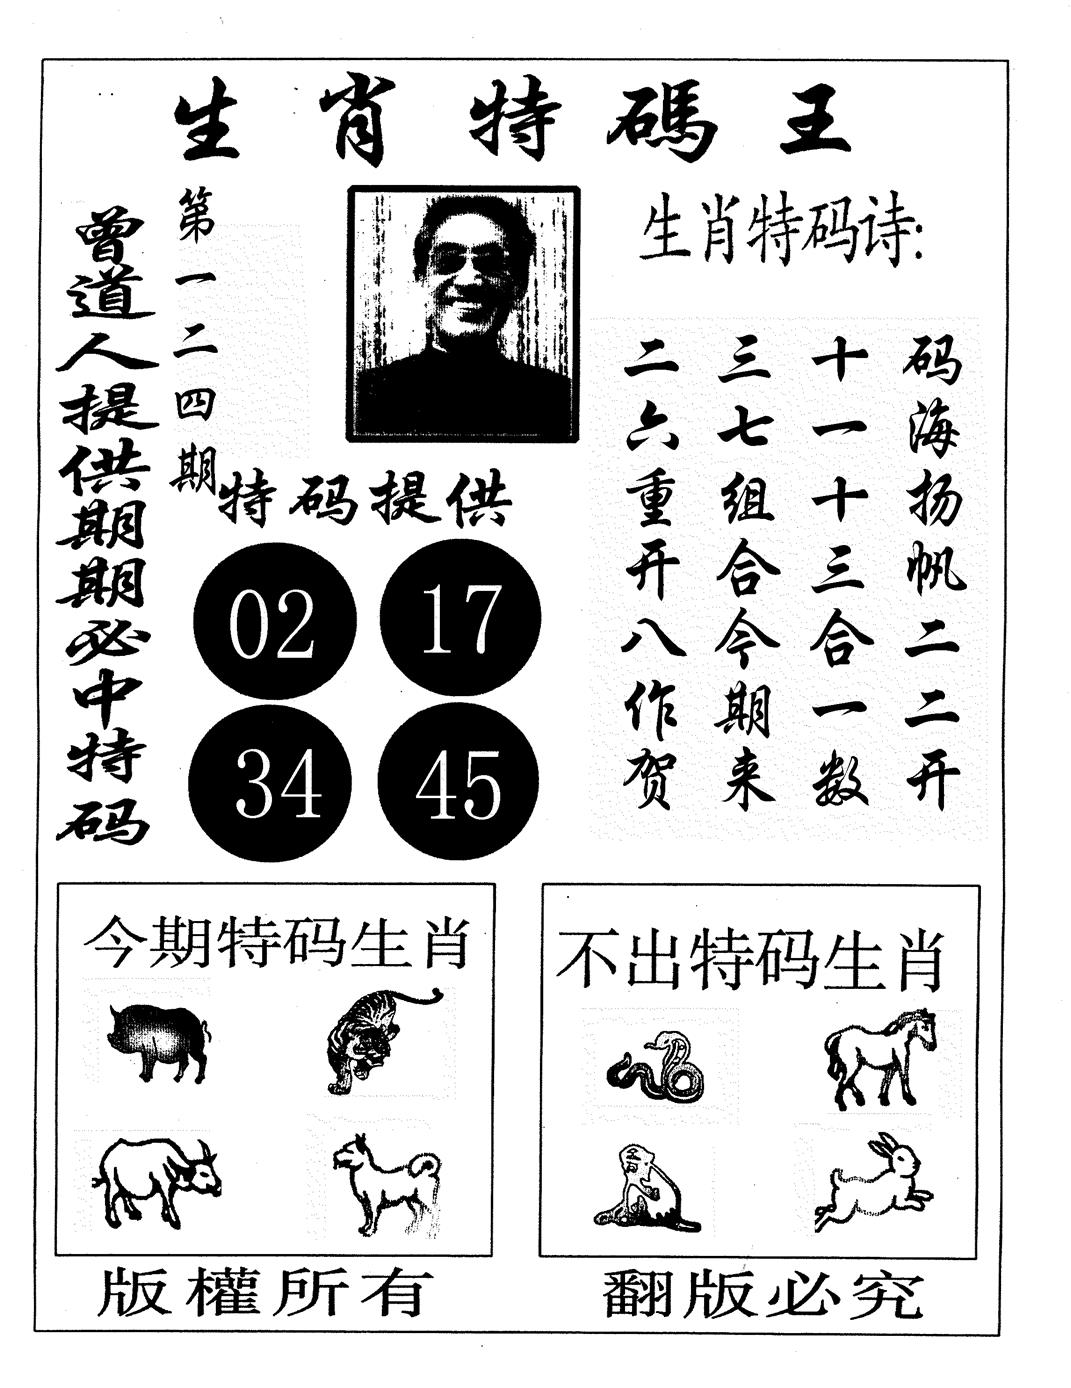 生肖特碼王
曾道人提供期期必中特码
第一二四期
特码提供
02
17
34
45
生肖特码诗:
码海扬帆二二开
十一十三合一数
三七组合今期来
二六重开八作贺
今期特码生肖
不出特码生肖
版權所有
翻版必究